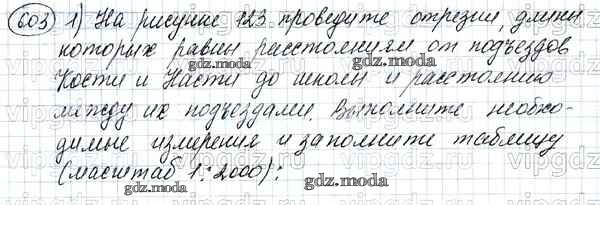 603 1) На рисунке 123 проведите отрезки, длины
которых равны расстояниям от подъездов
Кости и Насти до школы и расстоянию
между их подъездами. Выполните необхо-
димые измерения и заполните таблицу
(масштаб 1:2000):
gdz.moda
gdz.moda
gdz.moda
gdz.moda
gdz.moda
gdz.moda
vipgdz.ru
vipgdz.ru
vipgdz.ru